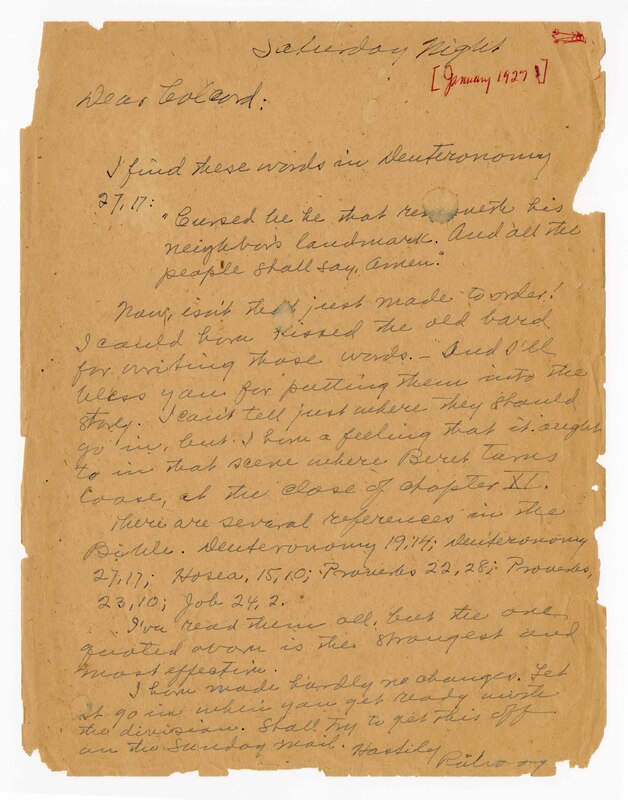 Saturday Night
[January 1927]
Dear Colcord:
I find these words in Deuteronomy
27,17:
"Cursed be he that removeth his
neighbors landmark. And all the
people shall say, Amen".
Now, isn't that just made to order!
I could have kissed the old bard
for writing those words. — And I'll
bless you for putting them into the
story. I can't tell just where they should
go in, but I have a feeling that it ought
to in that scene where Beret turns
loose, at the close of chapter XI.
There are several references in the
Bible. Deuteronomy 19,14; Deuteronomy
27,17; Hosea, 15,10; Proverbs 22,28; Proverbs,
23,10; Job 24,2.
I've read them all, but the one
quoted above is the strongest and
most effective.
I have made hardly no changes. Let
it go in when you get ready with
the division. Shall try to get this off
on the Sunday mail. Hastily